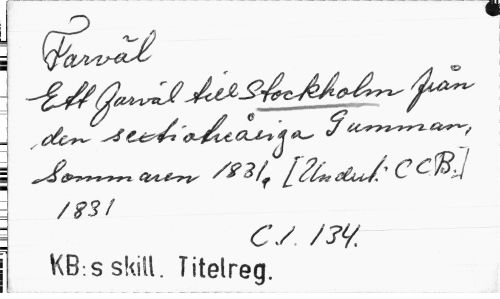 Farväl
Ett farväl till Stockholm från
den sextioåriga Gumman,
Sommaren 1831. [Undert: CCB.]
1831
C.1. 134.
KB:s skill. Titelreg.